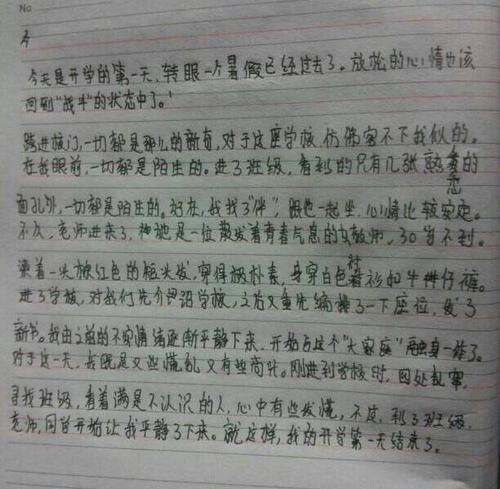 No
今
今天是开学的第一天，转眼一个暑假已经过去了。放松的心情也该
回到“战斗”的状态中了。
跨进校门，一切都是那么的新奇，对于这座学校，仿佛容不下我似的。
在我眼前，一切都是陌生的。进了班级，看到的只有几张熟悉的
面孔外，一切都是陌生的。好在，我找了“伴”，跟他一起坐，心情比较安定。
不久，老师进来了，她是一位散发着青春气息的女教师，30岁不到。
染着一头棕红色的短头发，穿得很朴素，身穿白色衬衫和牛仔裤。
进了学校，对我们先介绍学校，之后又重先编排了一下座位，发了
新书。我由之前的不安情绪逐渐平静下来，开始与这个“大家庭”融身一体了。
对于这一天，我既是又些慌乱又有些。刚进到学校时，四处乱窜，
寻找班级，看着满是不认识的人，心中有些发慌，不过，到了班级，
老师，同台开始让我平静了下来。就这样，我的开学第一天结束了。